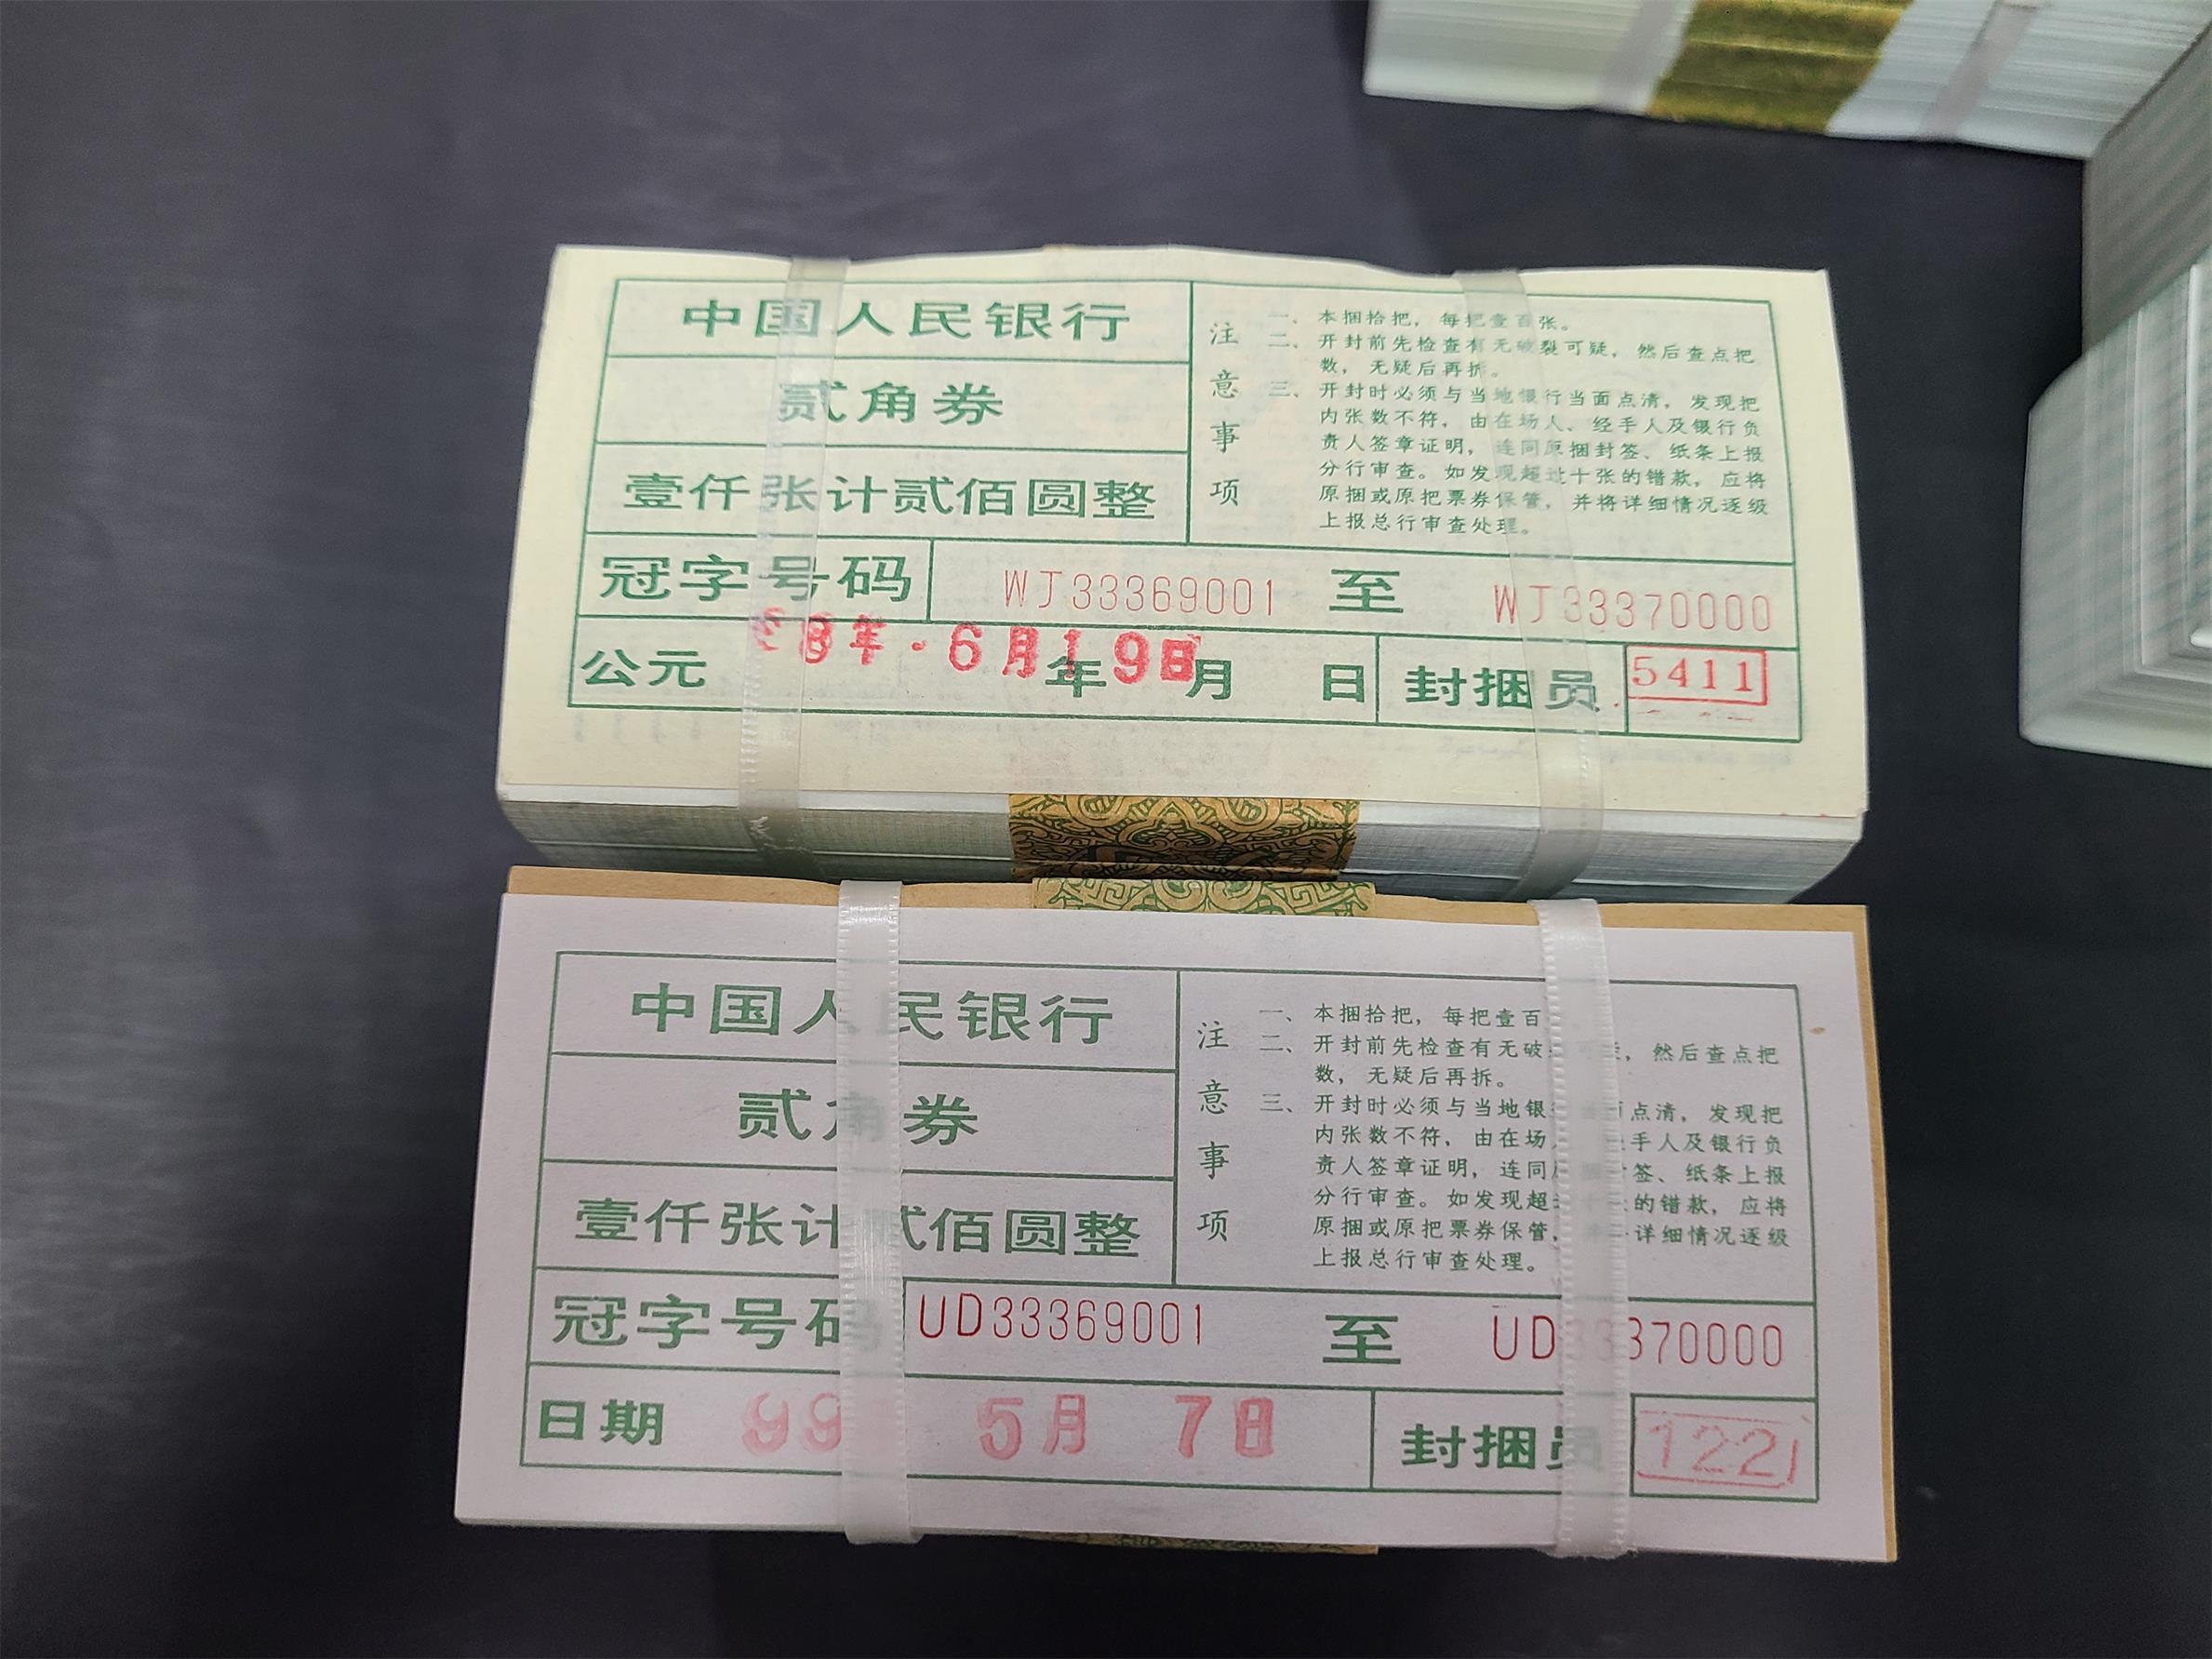 中国人民银行
贰角券
壹仟张计贰佰圆整
注意事项
一、本捆拾把，每把壹百张。
二、开封前先检查有无破裂可疑，然后查点把
数，无疑后再拆。
三、开封时必须与当地银行当面点清，发现把
内张数不符，由在场人、经手人及银行负
责人签章证明，连同原捆封签、纸条上报
分行审查。如发现超过十张的错款，应将
原捆或原把票券保管，并将详细情况逐级
上报总行审查处理。
冠字号码 WJ33369001 至 WJ33370000
8年·6月19日
公元 年 月 日 封捆员 5411
中国人民银行
贰角券
壹仟张计贰佰圆整
注意事项
一、本捆拾把，每把壹百
二、开封前先检查有无破 ，然后查点把
数，无疑后再拆。
三、开封时必须与当地银 点清，发现把
内张数不符，由在场 手人及银行负
责人签章证明，连同 签、纸条上报
分行审查。如发现超 十 的错款，应将
原捆或原把票券保管， 详细情况逐级
上报总行审查处理。
冠字号码 UD33369001 至 UD33370000
日期 99 5月 7日 封捆员 1221